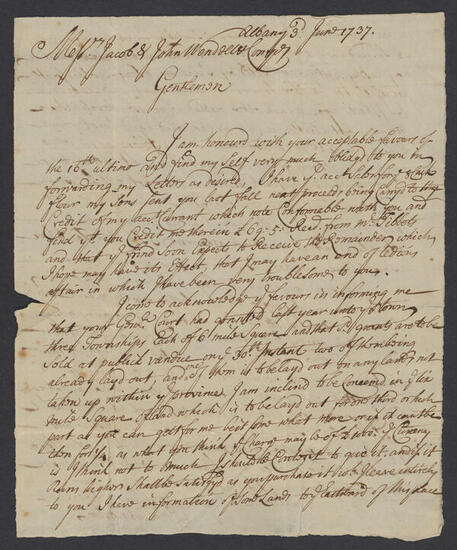 Albany 3d June 1737.
Messrs. Jacob & John Wendell & Compy
Gentlemen
I am honour'd with your acceptable favours of
the 16th ultimo and find my Self very much oblidg'd to you in
forwarding my Letters as desired, I have ye acct Sales for
flour my Sons Sent you last fall neat proceeds being Carryd to the
Credit of my accot Currant which note Conformable with you and
find yt you Credit me therein £69..5 Recd. from Mr. Tibbets
and that you Soon Expect to Receive the Remainder which
I hope may have its Effect, that I may have an End of
affair in which I have been very troublesome to you.
I come to acknowledge ye favour in informing me
that your Genll Court had granted last year unto ye Town
three Townships Each of 6 mile Square and that ye grants are to be
Sold at publick vandue on ye 30th Instant two of them being
already laid out, and ye of them is to be laid out on any land not
taken up within ye province, I am inclind to be Concernd in ye Six
mile Square of land which is to be laid out for one third or such
part as you can gett for me best
then for 1/4 as what you think ye Charge may be of
is I think not to much I Shall be Content to give it, and if it
Runs higher Shall be Satisfyd as you purchase it
to you I have information of Some Lands to ye Eastward of this place